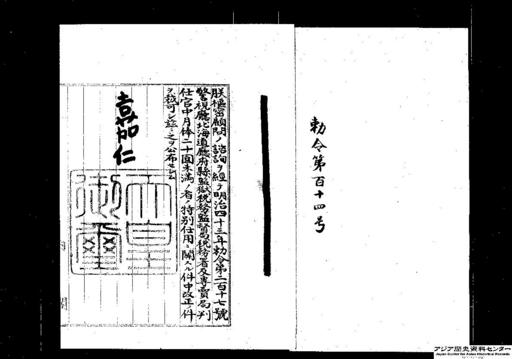 勅令第百十四号
朕樞密顧問ノ諮詢ヲ經テ明治四十三年勅令第二百十七號
警視廳北海道廳府縣監獄稅務監督局稅務署及專賣局判
任官中月俸二十圓未滿ノ者ノ特別任用ニ關スル件中改正ノ件
ヲ裁可シ茲ニ之ヲ公布セシム
嘉仁
天皇
御璽
アジア歴史資料センター
Japan Center for Asian Historical Records